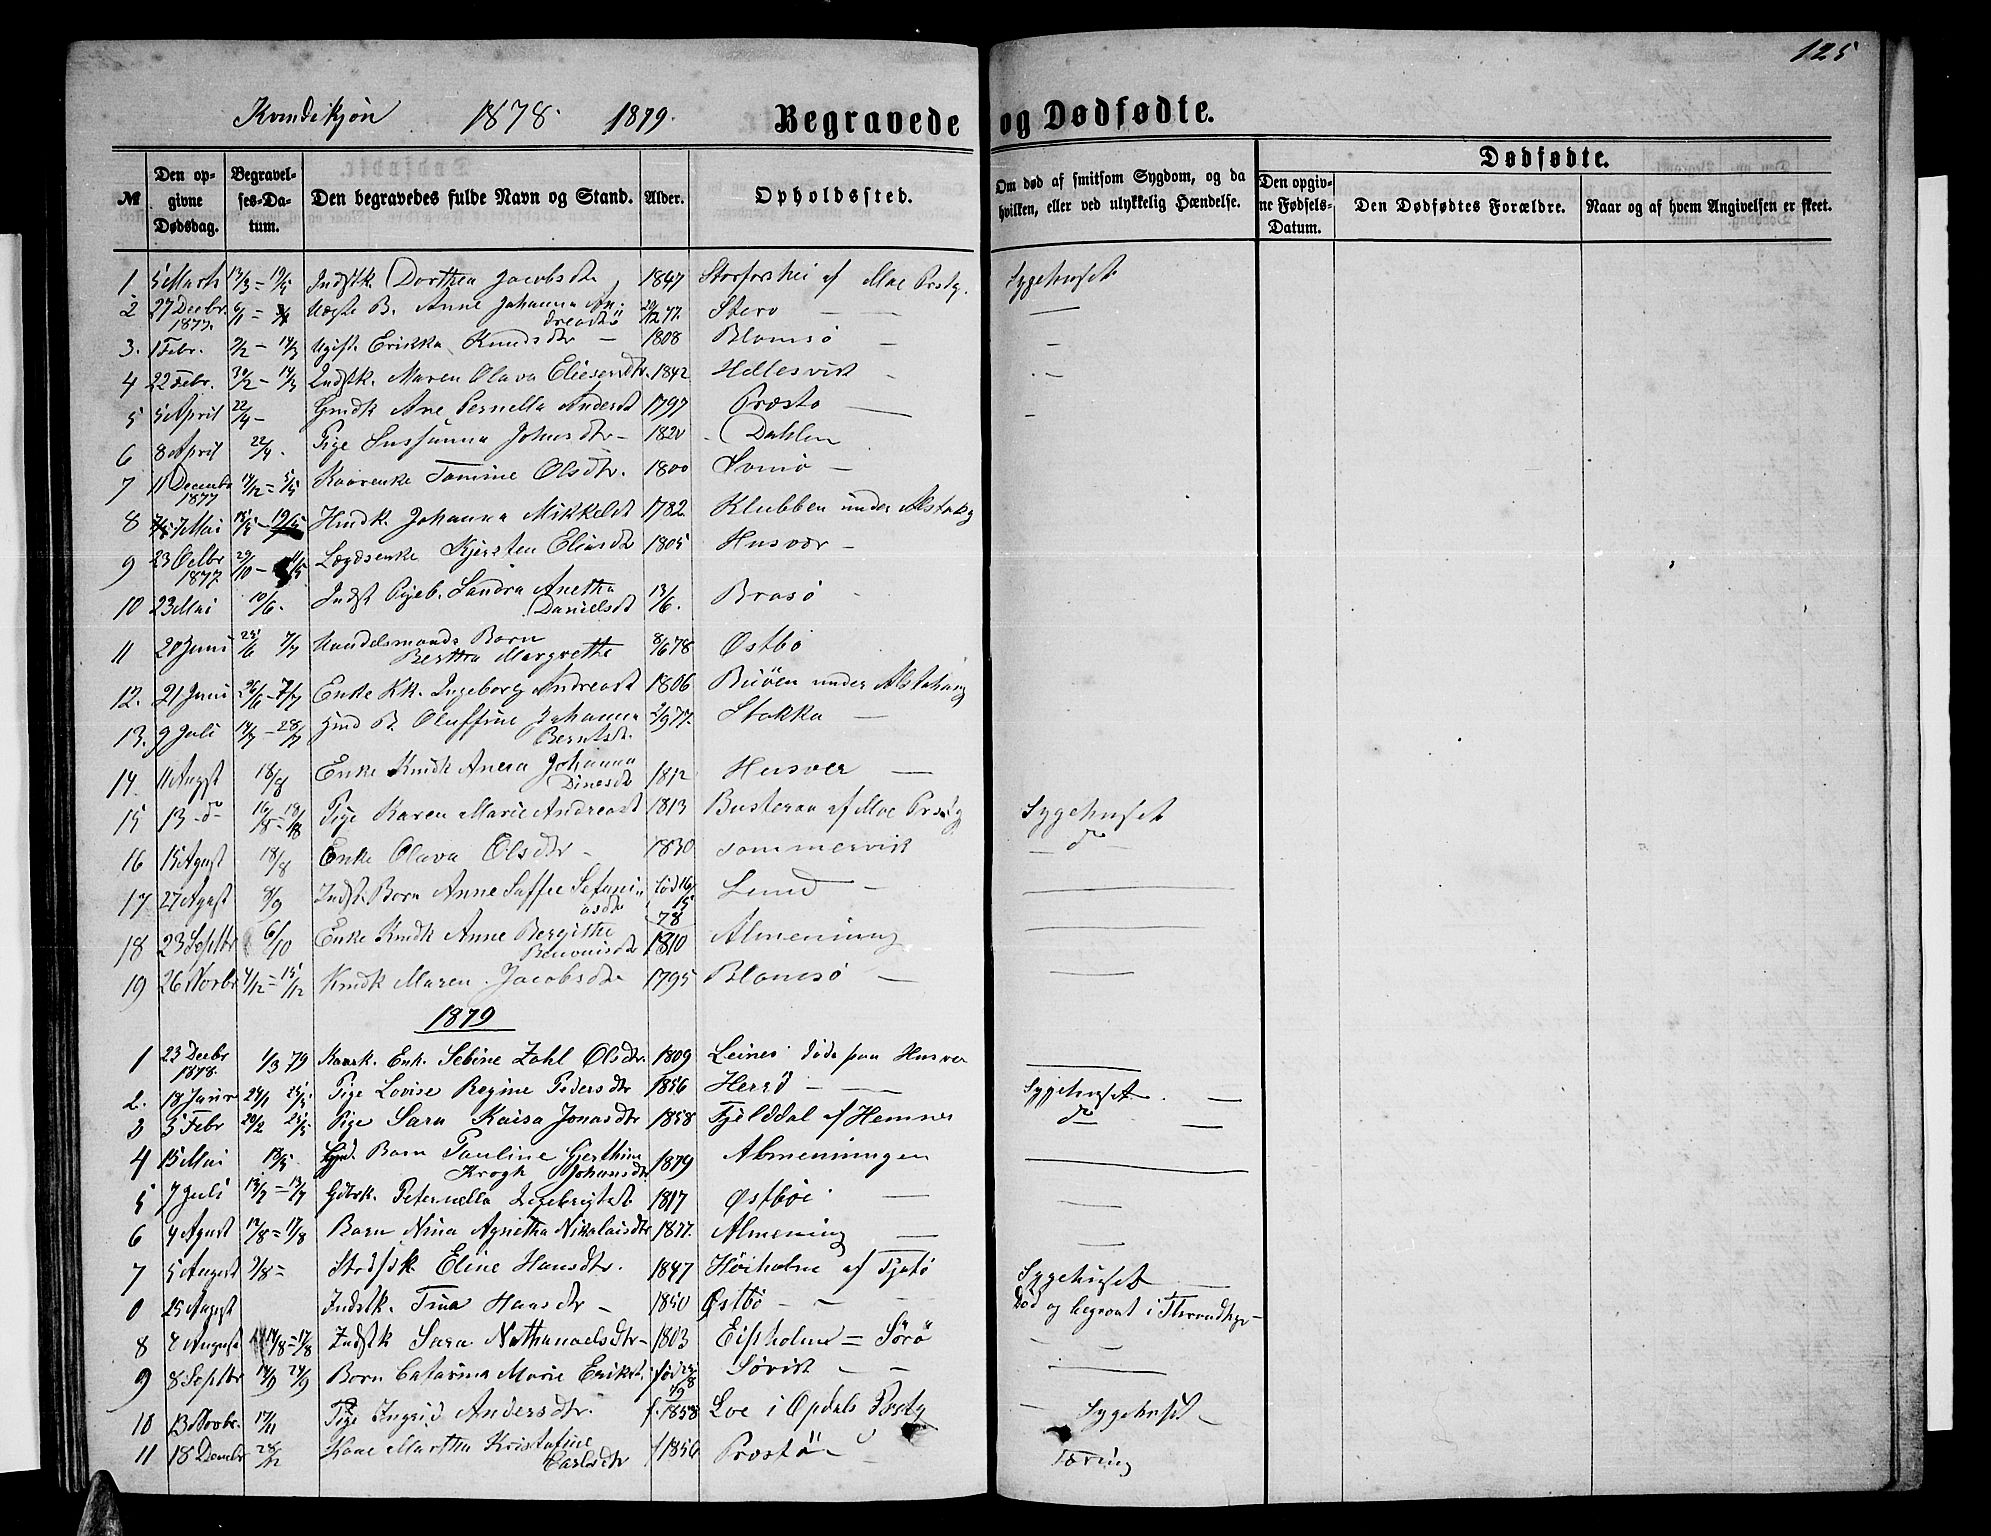 125
Kvindekjøn 1878. 1879. Begravede og Dødfødte.
№ Den opgivne Dødsdag. Begravelses-Datum. Den begravedes fulde Navn og Stand. Alder. Opholdssted. Om død af smitsom Sygdom, og da hvilken, eller ved ulykkelig Hændelse. Dødfødte. Den opgivne Fødsels-Datum. Den Dødfødtes Forældre. Naar og af hvem Angivelsen er skeet.
1 5 Marts 13/3 = 19/5 Indstk Dorthea Jacobsdtr 1847 Storforshei af Moe Prstg. Sygehuset
2 27 Decbr 1877. 6/1 = B. Anne Johanna Andreasd 77. Stero —
3. 1 Febr. 9/2 - 14/3 Ugift. Erikka Knudsdtr — 1808 Blomsø —
4 22 Febr. Indstk. Maren Olava Eliesensdtr. 1842 Hellesvik —
5 5 April 22/4 - Gmdk Ane Pernella Andersd 1797 Præstø —
6 8 April 22/4. Pige Sussanna Johnsdtr - 1820 Dahlen
7 11 Decembr 1877 Kaarenke Tomine Olsdtr. 1800 —
8 7 Mai 15/5 - 19/5 Hmdk. Johanna Mikkelsd 1782 Klubben under Alstahg
9 23 Octbr 1877 29/10 - Lægdsenke Kjersten Eliasdtr 1805 Husvær -
10 23 Mai 10/6. Indst Pigeb. Sandra Anetha Danielsdt 13/6. Brasø -
11 20 Juni 7/7 Handelsmands Barn Bertha Margrethe 8/6 78 Østbø
12. 21 Juni 26/6 - 7/7 Enke Kk. Ingeborg Andreasd 1806 Buøen under Alstahaug
13. 9 Juli 14/7 - 28/7 Gmd B. Oluffine Johanna Berntsdt. 2/9 77. Stokka —
14. 11 Augst 18/8 Enke Kmdk Anna Johanna Dinesdt 1812 Husvær —
15 13 -do 16/8 = 18/8 Pige Karen Marie Andreasd 1813 af Moe Prstg Sygehuset
16 15 Agust 18/8 Enke Olava Olsdtr - 1830 Sommervik — do —
17 27 Agust 8/9 Indst. Barn Anne Saffie fød 16/5 78 Lund —
18 23 Septbr 6/10 Enke Kmdk Anne Bergithe 1810 Almenning
19 26 Novbr 4/12 = 15/12 Kmdk Maren Jacobsdtr 1795 Blomsø —
1879
1 23 Decbr 1878. 1/3 79 Enk. Sebine Zahl Olsdtr. 1809 Leines døde paa Husvær
2. 18 Janr 24/1 25/5 Pige Lovise Regine Pedersdtr 1856 Herrø — Sygehuset. —
3 5 Febr 20/2 25/5 Pige Sara Kaisa Jonasdtr 1858 Fjelddal af Hemnes do —
4 15 Mai 18/5. Barn Pauline Gjerthine Krogh Johansdtr 1879 Almenningen
5 7 Juli 13/7 = 13/7 Gdbrk. Peternella Ingebrigtsd. 1817 Østbøe —
6 4 Agust 12/8 = 17/8 Barn Nina Agnetha Nikolaisdtr 1877. Almening —
7 5 August 9/8 = Eline Hansdtr. 1847 Høiholme af Tjøtø Sygehuset —
0 25 August Indstk. Tina Hansdtr — 1850 Østbø - — Død og begravet i
8 4 August 14/8 = 17/8 Indstk Sara Nathanaelsdtr - 1803 = Sørø —
9 8 Septbr 14/9 24/9 Barn Catarina Marie Eriksd. fød 79 Sørvik —
10 13 Novbr. 17/11 Pige Ingrid Andersdtr. f. 1858 Loe i Opdals Prstg Sygehuset —
11 18 Decmbr 28/12 Kone Martha Kristofine Carlsdtr f 1856 Præstø — Tæring